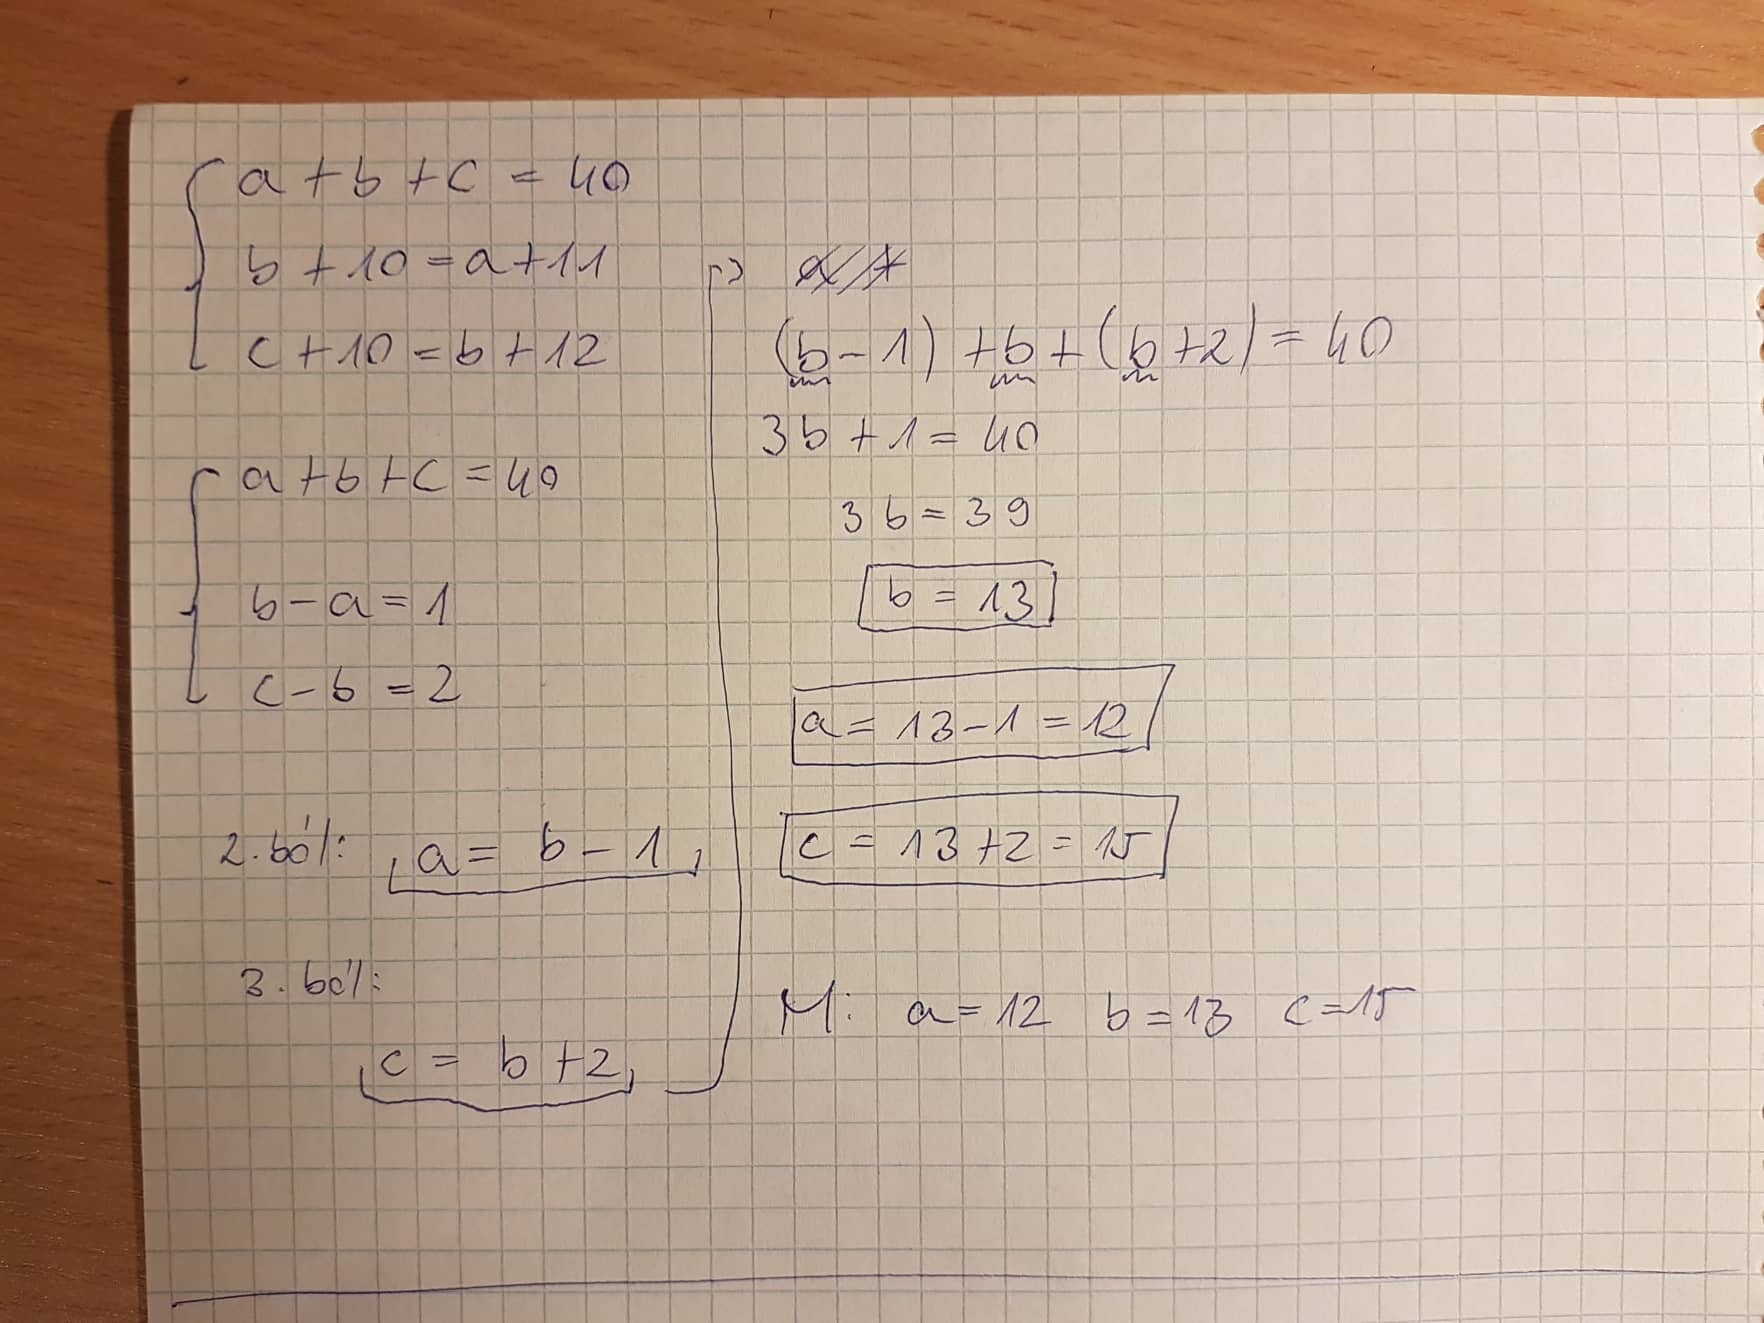 a + b + c = 40
b + 10 = a + 11
c + 10 = b + 12
a + b + c = 40
b - a = 1
c - b = 2
2. ból: a = b - 1
3. ból:
c = b + 2
(b - 1) + b + (b + 2) = 40
3b + 1 = 40
3b = 39
b = 13
a = 13 - 1 = 12
c = 13 + 2 = 15
M: a = 12 b = 13 c = 15